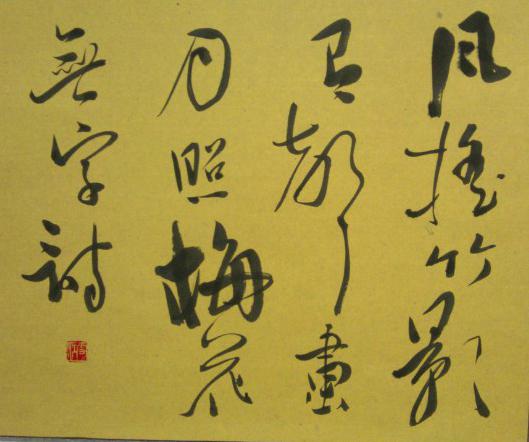 風搖竹影
有聲畫
月照梅花
無字詩